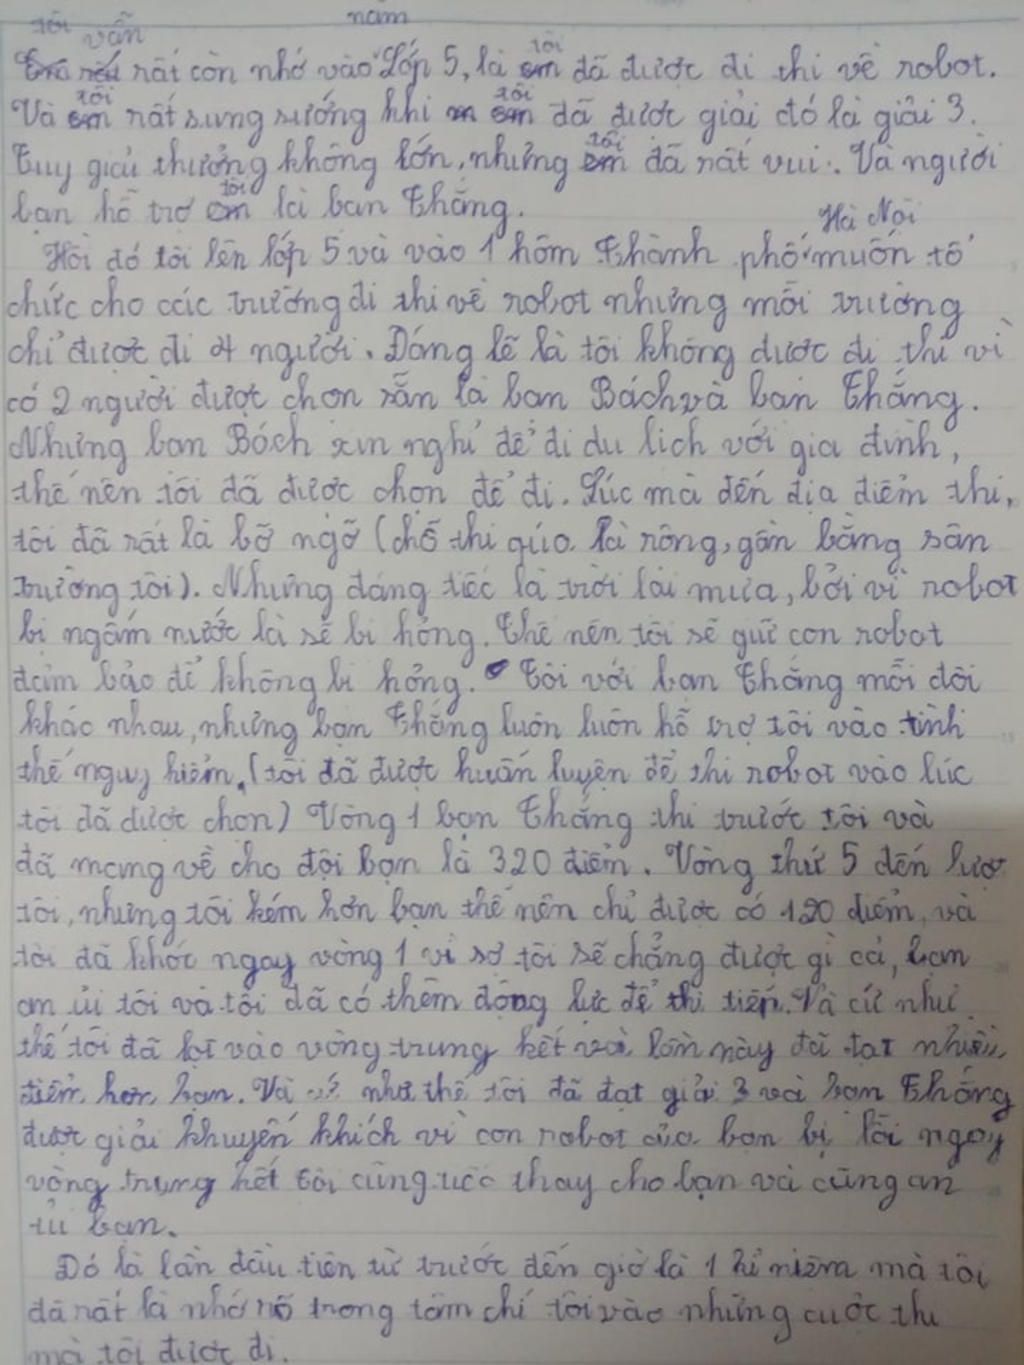 tôi vẫn năm
rất còn nhớ vào Lớp 5, là em tôi đã được đi thi về robot.
Và em tôi rất sung sướng khi em tôi đã được giải đó là giải 3.
Tuy giải thưởng không lớn, nhưng em tôi đã rất vui. Và người
bạn hỗ trợ em tôi là bạn Thắng.
Hồi đó tôi lên lớp 5 và vào 1 hôm Thành phố Hà Nội muốn tổ
chức cho các trường đi thi về robot nhưng mỗi trường
chỉ được đi 4 người. Đáng lẽ là tôi không được đi thi vì
có 2 người được chọn sẵn là bạn Bách và bạn Thắng.
Nhưng bạn Bách xin nghỉ để đi du lịch với gia đình,
thế nên tôi đã được chọn để đi. Lúc mà đến địa điểm thi,
tôi đã rất là bỡ ngỡ (chỗ thi qúa là rộng, gần bằng sân
trường tôi). Nhưng đáng tiếc là trời lại mưa, bởi vì robot
bị ngấm nước là sẽ bị hỏng. Thế nên tôi sẽ giữ con robot
đảm bảo để không bị hỏng. Tôi với bạn Thắng mỗi đội
khác nhau, nhưng bạn Thắng luôn luôn hỗ trợ tôi vào tình
thế nguy hiểm. (tôi đã được huấn luyện để thi robot vào lúc
tôi đã được chọn) Vòng 1 bạn Thắng thi trước tôi và
đã mang về cho đội bạn là 320 điểm. Vòng thứ 5 đến lượt
tôi, nhưng tôi kém hơn bạn thế nên chỉ được có 120 điểm, và
tôi đã khóc ngay vòng 1 vì sợ tôi sẽ chẳng được gì cả, bạn
an ủi tôi và tôi đã có thêm động lực để thi tiếp. Và cứ như
thế tôi đã lọt vào vòng trung kết và lần này đã đạt nhiều
điểm hơn bạn. Và cứ như thế tôi đã đạt giải 3 và bạn Thắng
được giải khuyến khích vì con robot của bạn bị lỗi ngay
vòng trung kết tôi cũng thay cho bạn và cũng an
ủi bạn.
Đó là lần đầu tiên từ trước đến giờ là 1 kỉ niệm mà tôi
đã rất là nhớ rõ trong tâm chí tôi vào những cuộc thi
mà tôi được đi.